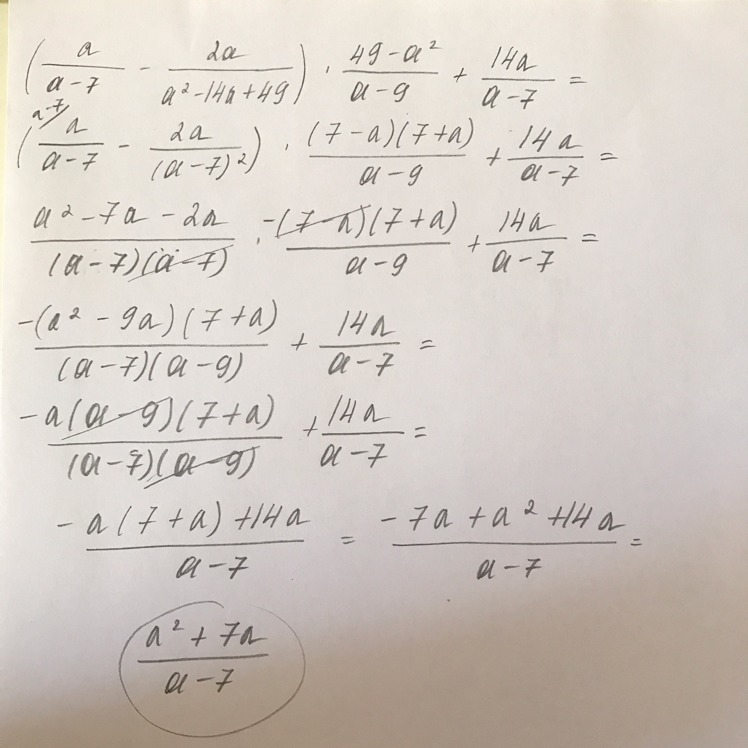 (a/(a-7) - 2a/(a²-14a+49)) · (49-a²)/(a-9) + 14a/(a-7) =
(a-7\ a/(a-7) - 2a/(a-7)²) · (7-a)(7+a)/(a-9) + 14a/(a-7) =
(a²-7a-2a)/((a-7)(a-7)) · -(7-a)(7+a)/(a-9) + 14a/(a-7) =
-(a²-9a)(7+a)/((a-7)(a-9)) + 14a/(a-7) =
-a(a-9)(7+a)/((a-7)(a-9)) + 14a/(a-7) =
(-a(7+a)+14a)/(a-7) = (-7a+a²+14a)/(a-7) =
(a²+7a)/(a-7)